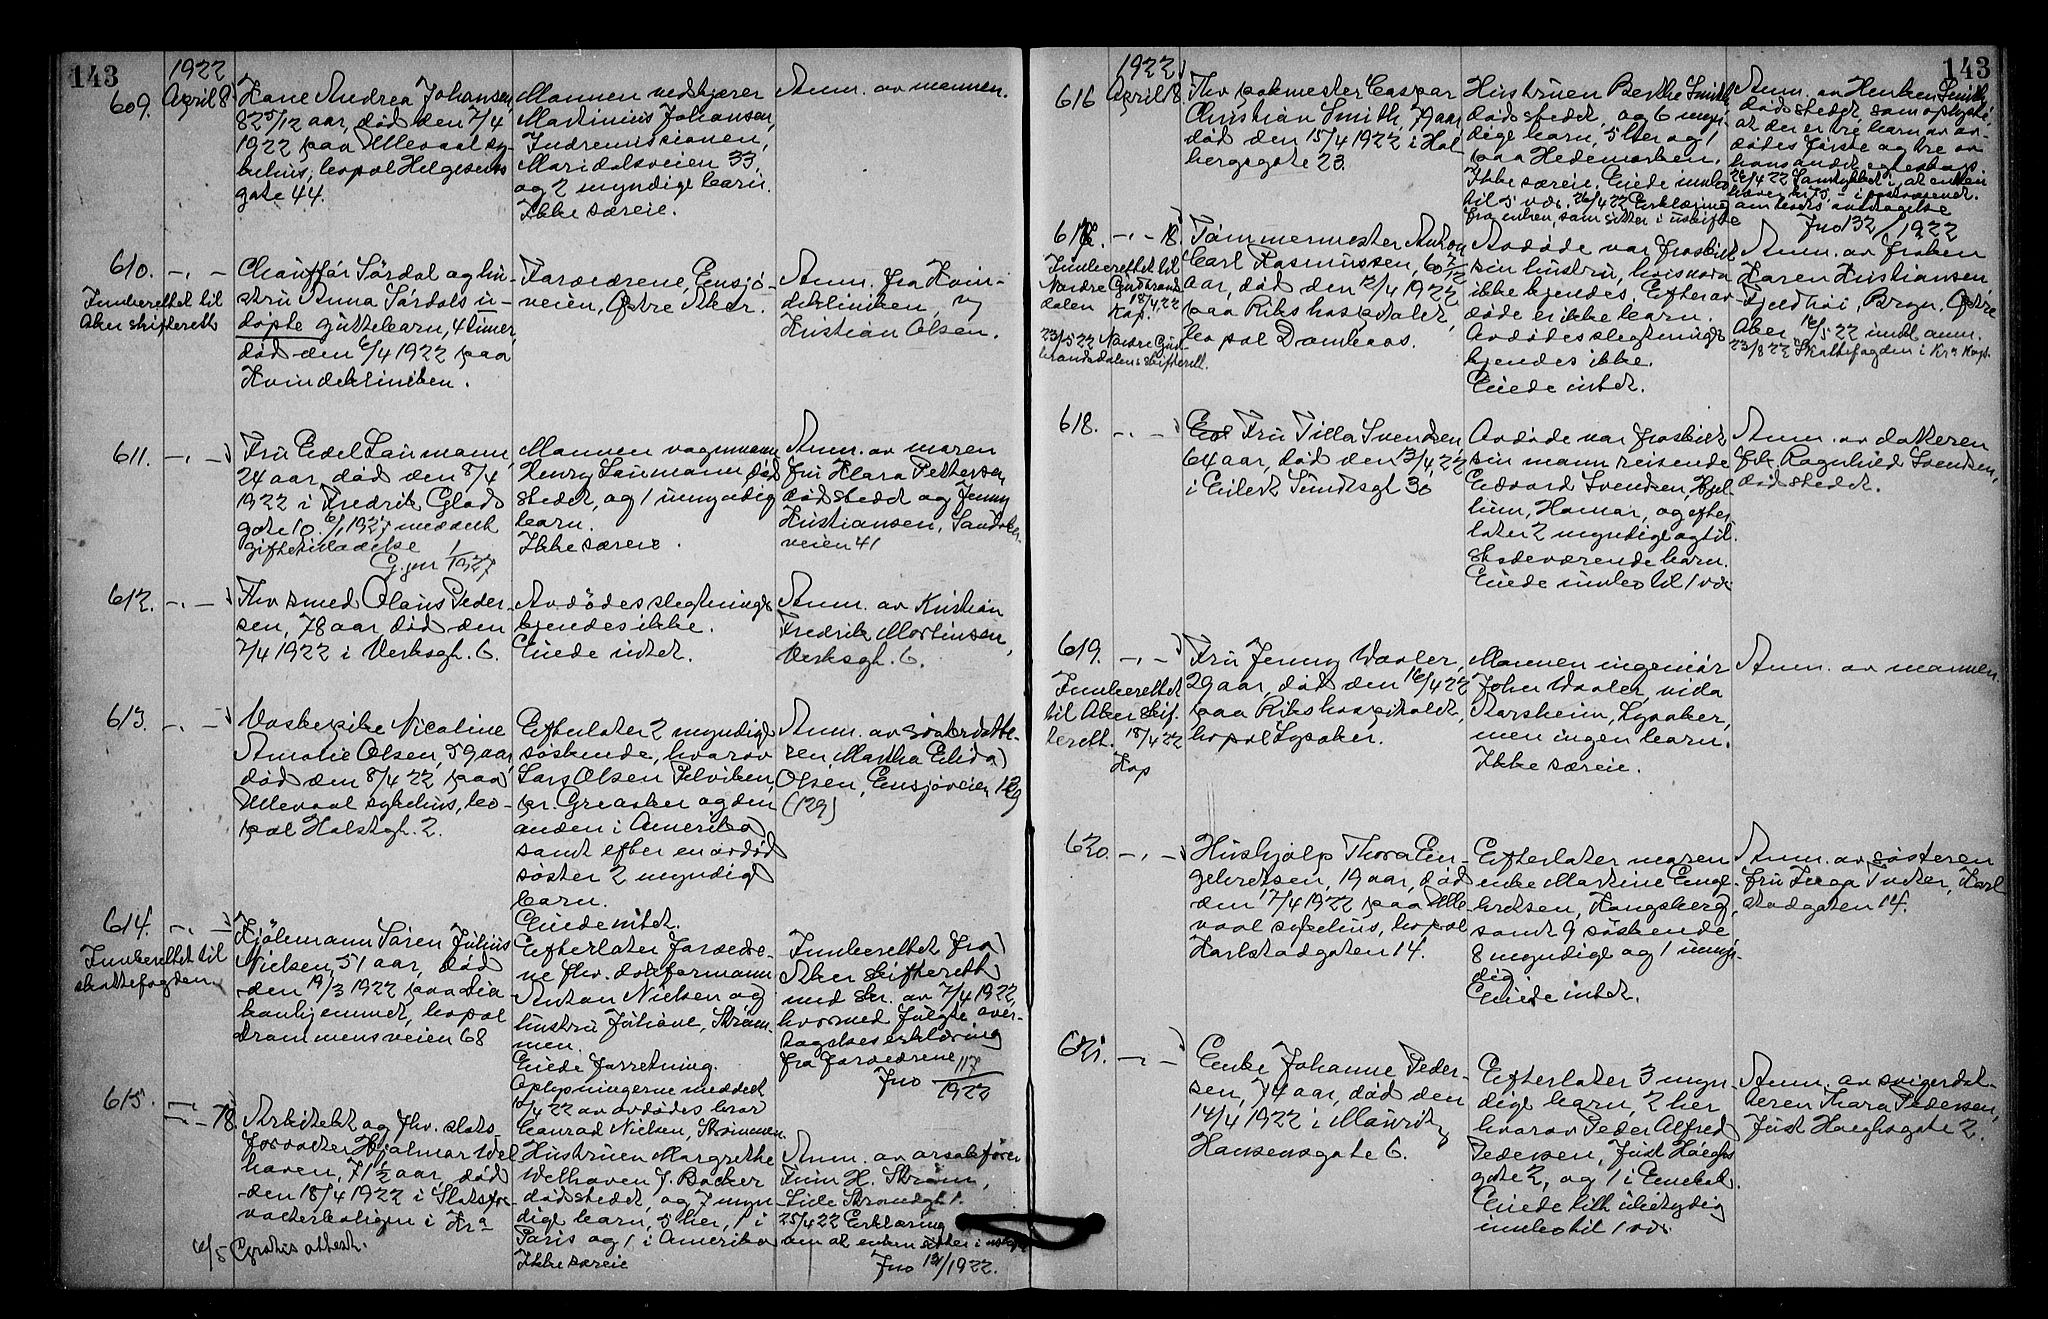 143
1922
609. April 8.
Hane Andrea Johansen,
82 5/12 aar, død den 7/4
1922 paa Ullevaal sy-
kehus, bopæl Helgesens
gate 44.
Mannen vedkjører
Martinius Johansen,
Indremissionen,
Maridalsveien 33
og 2 myndige barn.
Ikke særeie.
Anm. av mannen.
610. -"-
Innberettet til
Aker skifterett
Chauffør Sørdal og hu-
stru Anna Sørdals u-
døpte guttebarn, 4 timer,
død den 6/4 1922 paa
Kvindeklinikken.
Forældrene, Ensjø-
veien, Østre Aker.
Anm. fra Kvin-
deklinikken, v/
Kristian Olsen.
611. -"-
Fru Edel Laumann,
24 aar, død den 8/4
1922 i Fredrik Glads
gate 10. 6/1 1927 meddelt
giftetilladelse
G.jnr 1/1927
Mannen vognmann
Henry Laumann død-
stedet, og 1 umyndig
barn.
Ikke særeie.
Anm. av moren
fru Klara Pettersen
dødstedet og Jenny
Kristiansen, Sandaker-
veien 41
612. -"-
Fhv smed Olaus Peder-
sen, 78 aar død den
7/4 1922 i Verksgt. 6.
Avdødes slegtninge
kjendes ikke.
Eiede intet.
Anm. av Kristian
Fredrik Mortinsen,
Verksgt. 6.
613. -"-
Vaskepike Nicoline
Amalie Olsen, 59 aar,
død den 8/4 22 paa
Ullevaal sykehus, bo-
pæl Holstgt. 2.
Efterlater 2 myndige
søskende, hvorav
Lars Olsen Pelviken,
pr. Greaaker og den
anden i Amerika
samt efter en avdød
søster 2 myndige
barn.
Eiede intet.
Anm. av søsterdatte-
ren Martha Elida
Olsen, Ensjøveien 129
(129)
614. -"-
Innberettet til
skattefogden.
Kjølemann Søren Julius
Nielsen, 51 aar, død
den 19/3 1922 paa Dia
konhjemmet, bopæl
Drammensveien 68
Efterlater forældre-
ne fhv. dokformann
Anton Nielsen og
hustru Juliane, Strøm-
men.
Eiede forretning.
Oplysningerne meddelt
/4 22 av avdødes bror
Conrad Nielsen, Strømmen.
Innberettet fra
Aker skifterett
med skr. av 7/4 1922,
hvormed fulgte over-
tagelseserklæring
fra forældrene
Jno 117/1922
615. -"-
-"- 18.
Arkitekt og fhv. slots
forvalter Hjalmar Wel
haven, 71 1/2 aar, død
den 18/4 1922 i Slotsfor
valterboligen i Kra
/5 Gratis attest.
Hustruen Margrethe
Welhaven f. Backer
dødstedet, og 7 myn
dige barn, 5 her, 1 i
Paris og 1 i Amerika
Ikke særeie
Anm. av orsakfører
H. Strøm,
Lille Strandgt 1.
25/4 22 Erklæring
om at enken sitter i uskifte
Jno /1922.
143
1922
616 April 18.
Fhv pakmester Caspar
Christian Smith, 79 aar,
død den 15/4 1922 i Hol-
bergsgate 23.
Hustruen Berthe Smith,
dødstedet, og 6 myn-
dige barn, 5 her og 1
paa Hedemarken.
Ikke særeie. Eiede innbo
til 5 vdr. 26/4 22 Erklæring
fra enken, som sitter i uskifte
Anm. av Henken Smith,
dødstedet, som oplyste,
at der er tre barn av av-
dødes første og tre av
hans andet egteskap.
26/4 22 Samtykket i, at enken
hæver kr 75,- i postvæsenet.
anvendt. antagelse
Jno 132/1922
617. -"- 18.
Innberettet til
Nordre Gudbrands-
dalen 18/4 22
Kop.
23/5 22 Nordre Gud-
brandsdalens skifterett.
Tømmermester Anton
Carl Rasmussen, 60 7/12
aar, død den 12/4 1922
paa Rikshospitalet,
bopæl Dombaas.
Avdøde var fraskilt
sin hustru, hvis navn
ikke kjendes. Efter av-
døde er ikke barn.
Avdødes slegtninge
kjendes ikke.
Eiede intet.
Anm. av frøken
Karen Kristiansen
Fjeldhøi, Bryn, Østre
Aker. 16/5 22 innk. anm.
23/8 22 Skattefogden i Kra
618. -"-
Fru Tilla Svendsen
64 aar, død den 13/4 22
i Eilert Sundtsgt 30
Avdøde var fraskilt
sin mann reisende
Edvard Svendsen, Hjel-
lum, Hamar, og efter-
later 2 myndige og til-
stedeværende barn.
Eiede innbo til 1 vdr
Anm. av datteren
frk. Ragnhild Svendsen,
dødstedet.
619. -"-
Innberettet
til Aker skif-
terett. 18/4 22
Kop
Fru Jenny Waaler,
29 aar, død den 16/4 22
paa Rikshospitalet,
bopæl Lysaker.
Mannen ingeniør
John Waaler, villa
Aarsheim, Lysaker,
men ingen barn.
Ikke særeie.
Anm. av mannen.
620. -"-
Hushjælp Thora En-
gebretsen, 19 aar, død
den 17/4 1922 paa Ulle-
vaal sykehus, bopæl
Karlstadgaten 14.
Efterlater moren
enke Martine Enge-
bretsen, Kongsberg,
samt 9 søskende
8 myndige og 1 umyn-
dig.
Eiede intet.
Anm. av søsteren
fru Inga Tucker, Karl
stadgaten 14.
621. -"-
Enke Johanne Peder-
sen, 74 aar, død den
14/4 1922 i Mauritz
Hansensgate 6.
Efterlater 3 myn-
dige barn, 2 her
hvorav Peder Alfred
Pedersen, Just Høeghs
gate 2, og 1 i Enebak.
Eiede litt ubetydelig
innbo til 1 vdr.
Anm. av svigerdat-
teren Thora Pedersen,
Just Høeghsgate 2.